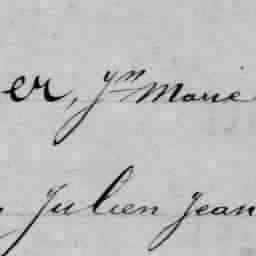 er, Yn Marie
Julien Jean